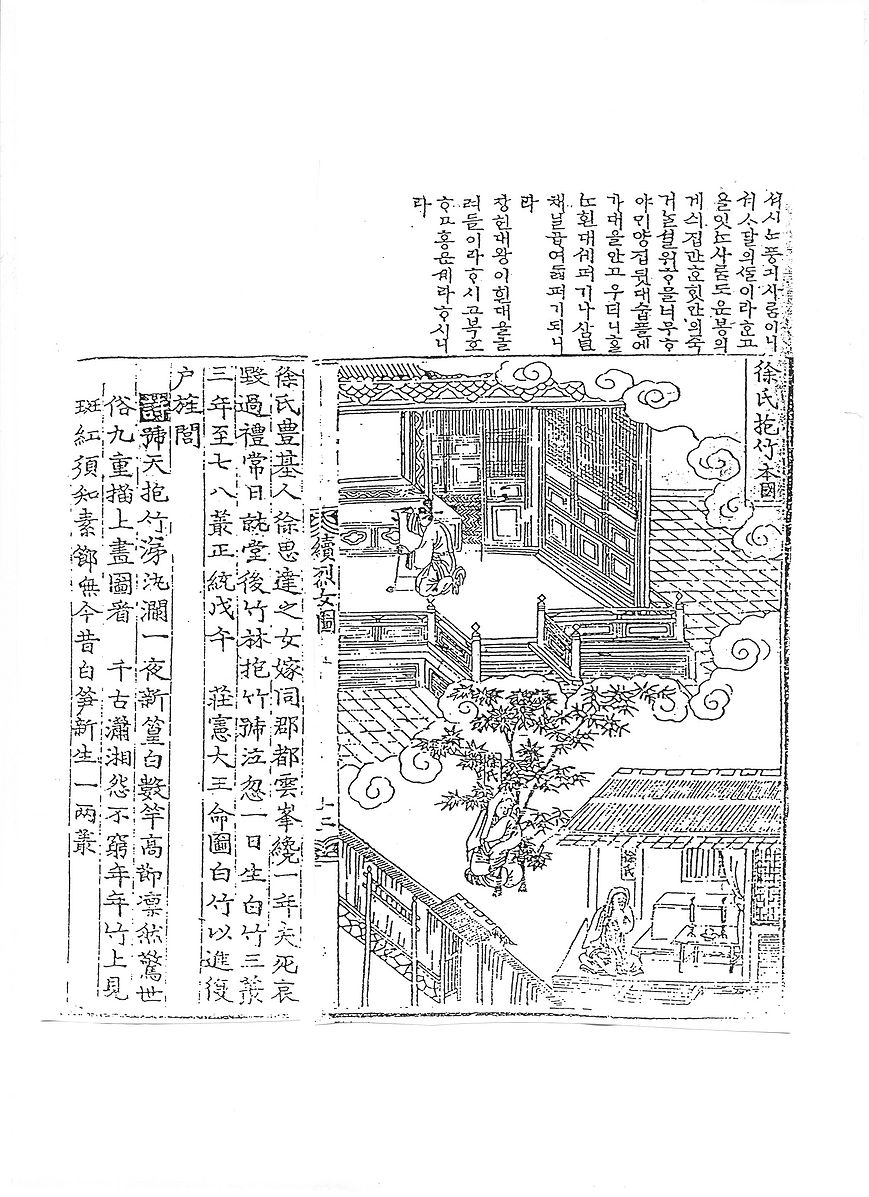 셔시ᄂᆞᆫ풍긔사ᄅᆞᆷ이니
셔ᄉᆞ달의ᄯᆞᆯ이라ᄒᆞᆫ고
올잇ᄂᆞᆫ사ᄅᆞᆷ도운봉의
게싀집간ᄒᆞᆫᄒᆡ만의죽
거늘셜워호ᄆᆞᆯ너무ᄒᆞ
야민양집뒷대숩플에
가대을안고우더니ᄒᆞᆯ
ᄂᆞᆫ흰대세퍼기나삼년
채닐굽여ᄃᆞᆲ퍼기되니
라
장헌대왕이흰대을
려드리라ᄒᆞ시고부호
ᄒᆞ며홍문셰라ᄒᆞ시니
라
徐氏抱竹本國
徐氏
徐氏
續烈女圖
十二
徐氏豊基人徐思達之女嫁同郡都雲峯纔一年夫死哀
毁過禮常日就堂後竹林抱竹號泣忽一日生白竹三叢
三年至七八叢正統戊午 莊憲大王命圖白竹以進復
戶旌閭
詩號天抱竹涕汍瀾一夜新篁白數竿高節凜然驚世
俗九重描上畫圖看 千古瀟湘怨不窮年年竹上見
斑紅須知素節無今昔白笋新生一兩叢